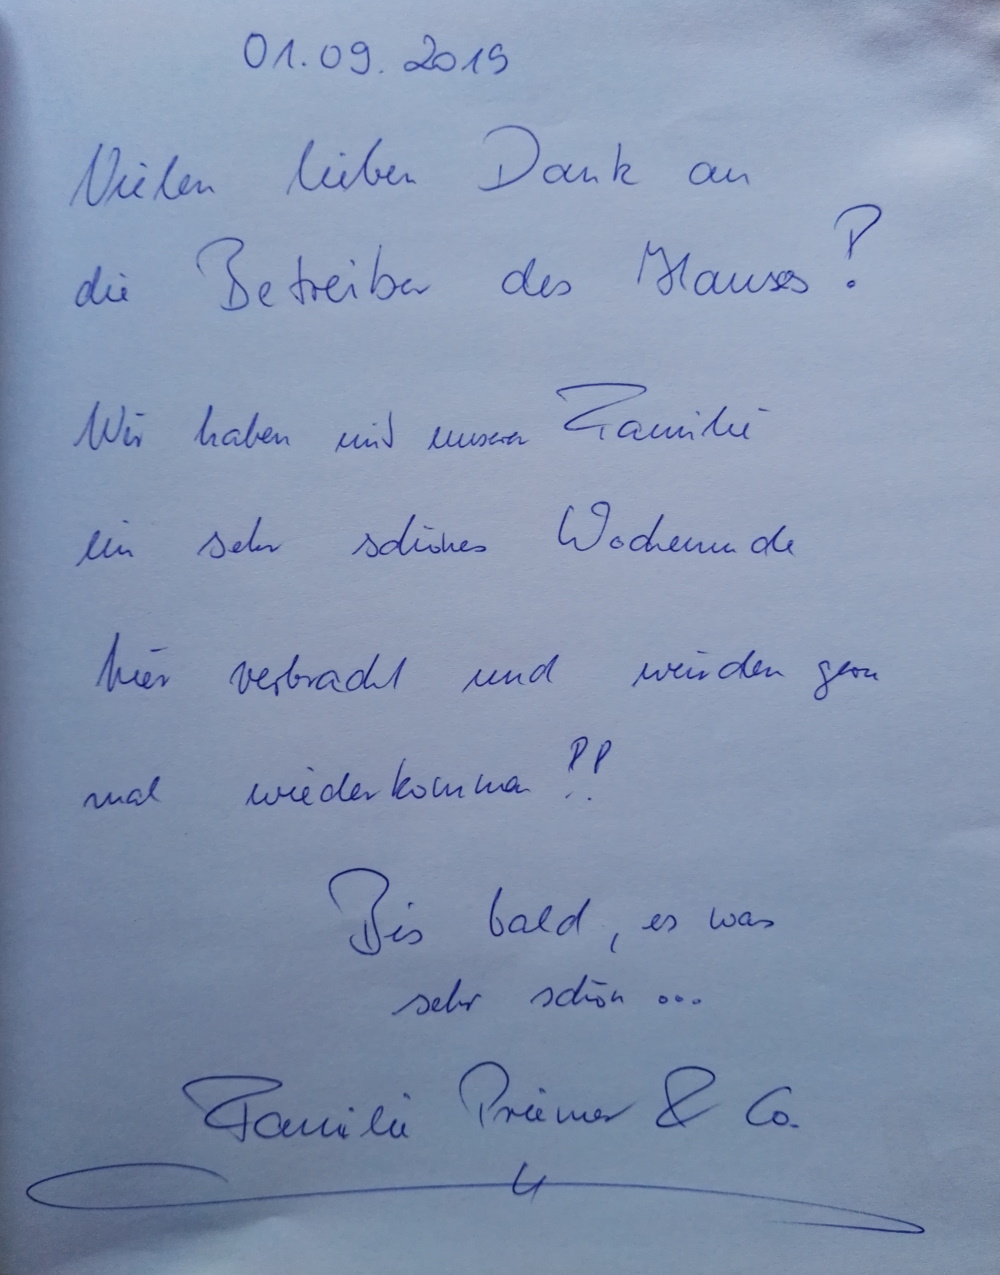 01.09.2019
Vielen lieben Dank an
die Betreiber des Hauses!
Wir haben mit unserer Familie
ein sehr schönes Wochenende
hier verbracht und würden gern
mal wiederkommen!!
Bis bald, es war
sehr schön ...
Familie Priemer & Co.